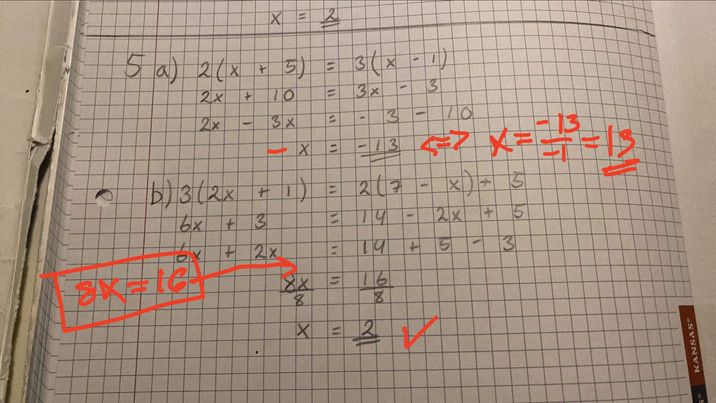 x = 2
5 a) 2(x + 5) = 3(x - 1)
2x + 10 = 3x - 3
2x - 3x = - 3 - 10
- x = -13 <=> x = -13/-1 = 13
b) 3(2x + 1) = 2(7 - x) + 5
6x + 3 = 14 - 2x + 5
6x + 2x = 14 + 5 - 3
8x = 16
8x/8 = 16/8
x = 2 ✓
KANSAS